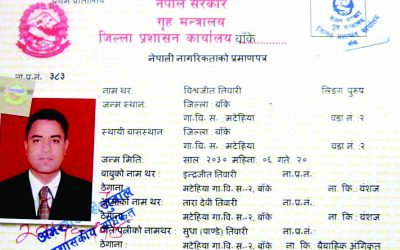 नेपाल सरकार
गृह मन्त्रालय
जिल्ला प्रशासन कार्यालय बाँके
नेपाली नागरिकताको प्रमाणपत्र
ना.प्र.नं. ३८३
नाम थर : विश्वजीत तिवारी लिङ्ग पुरुष
जन्म स्थान : जिल्ला बाँके
गा.वि.स. मटेहिया वडा नं २
स्थायी बासस्थान : जिल्ला बाँके
गा.वि.स. मटेहिया वडा नं २
जन्म मिति: साल २०३० महिना ०६ गते २०
बाबुको नाम थर : इन्द्रजीत तिवारी ना.प्र.नं:
ठेगाना : मटेहिया गा.वि.स.-२, बाँके ना कि: वंशज
नाम थर : तारा देवी तिवारी ना.प्र.नं.:
ठेगाना : मटेहिया गा.वि.स.-२, बाँके ना कि: वंशज
नाम थर : सुधा (पाण्डे) तिवारी ना.प्र.नं.:
ठेगाना : मटेहिया गा.वि.स.-२, बाँके ना कि: वैवाहिक अंगिकृत